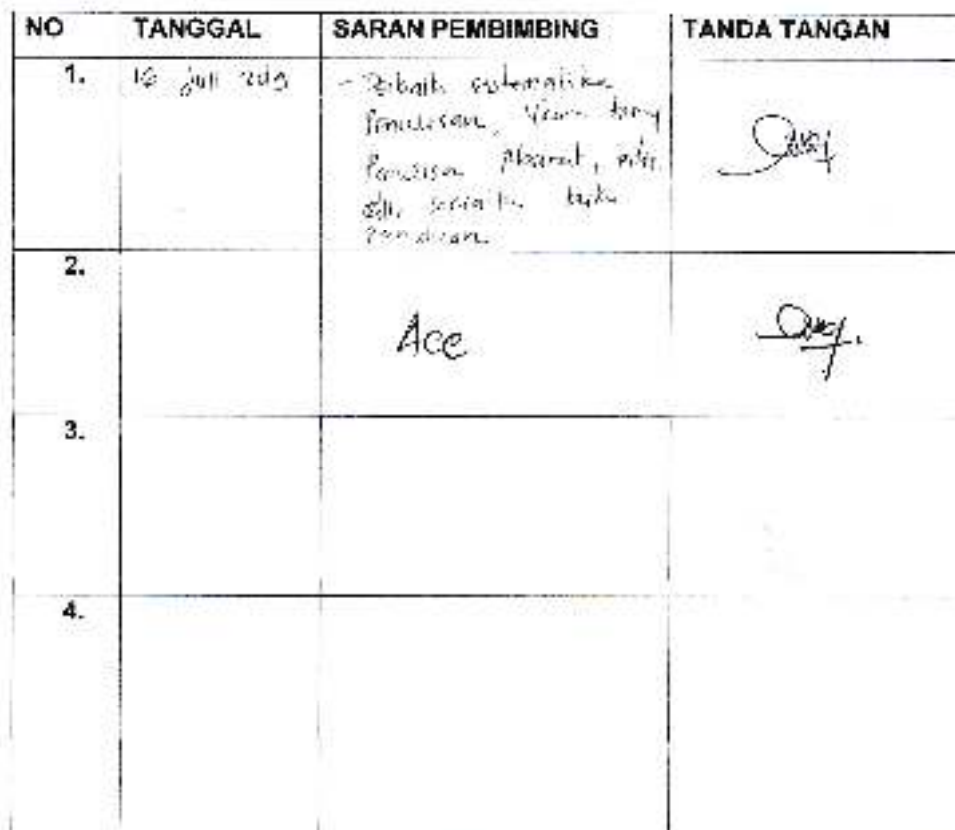 NO TANGGAL SARAN PEMBIMBING TANDA TANGAN
1. 16 Juli - Perbaiki sistematika
Penulisan,
Penulisan Abstrak,
dll. sesuai buku
Panduan
2.
Acc
3.
4.